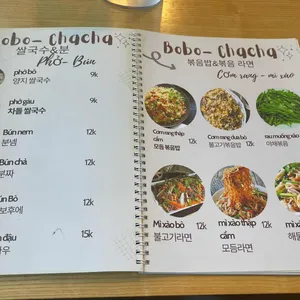 Bobo- Chacha
쌀국수&분
Phở- Bún
phở bò 9k
양지 쌀국수
phở gàu 9k
차돌 쌀국수
Bún nem 12k
분넴
Bún chả 12k
분짜
Bò 12k
보후에
đậu 15k
Bobo- Chacha
볶음밥&볶음 라면
Cơm rang - mì xào
Cơm rang thập cẩm 12k
모듬 볶음밥
Cơm rang dưa bò 12k
불고기볶음밥
rau muống xào
야채볶음
Mì xào bò 12k
불고기라면
mì xào thập cẩm 12k
모듬라면
mì xào